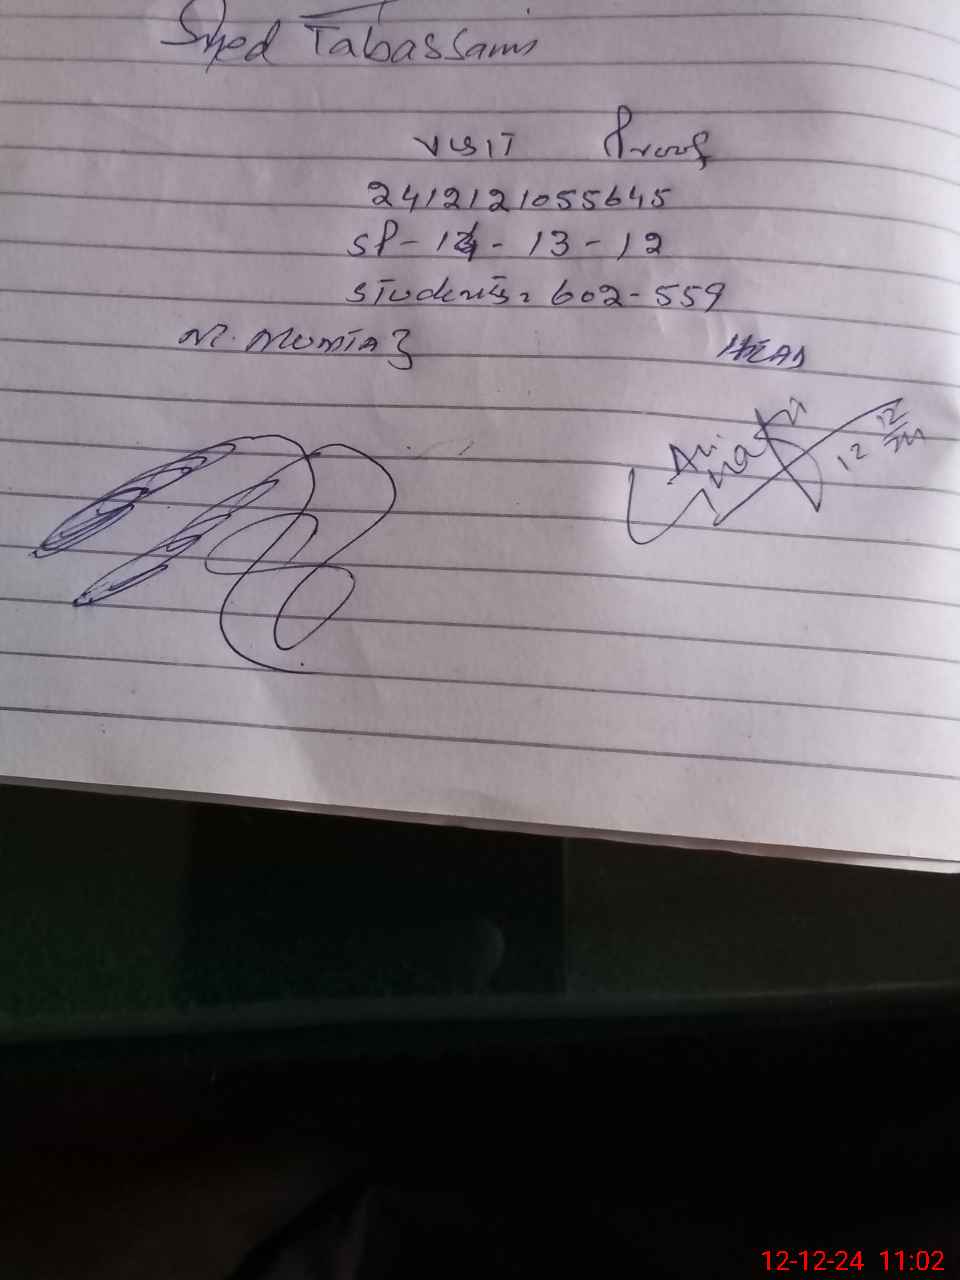 Syed Tabassam
VISIT Proof
2412121055645
SP-14-13-12
Students = 602-559
M. Mumtaz
HEAD
12 12/24
12-12-24 11:02